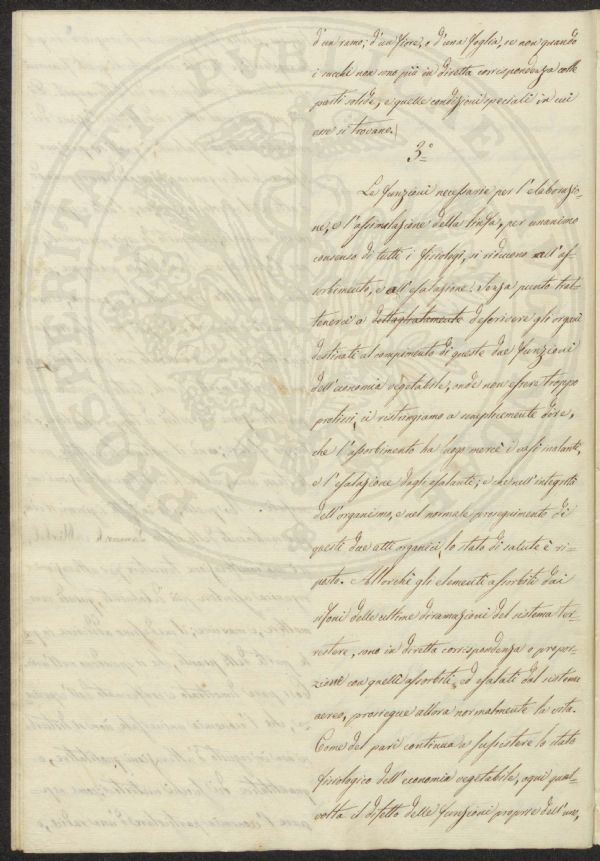 d'un ramo; d'un fiore, o d'una foglia, se non quando
i succhi non sono più in diretta corrispondenza colle
parti solide, e quelle condizioni speciali in cui
esse si trovano.
3°
Le funzioni necessarie per l'elaborazio-
ne, e l'assimolazione della linfa, per unanimo
consenso di tutti i fisiologi, si riducono all'as-
sorbimento, e all'esalazione. Senza punto trat-
tenerci a dettagliatamente descrivere gli organi
destinati al compimento di queste due funzioni
dell'economia vegetabile, onde non essere troppo
prolissi, ci ristringiamo a semplicemente dire,
che l'assorbimento ha luogo mercè i vasi inalanti,
e l'esalazione dagli esalanti; e che nell'integrità
dell'organismo, e nel normale proseguimento di
questi due atti organici, lo stato di salute è ri-
posto. Allorchè gli elementi assorbiti dai
sifoni delle ultime diramazioni del sistema ter-
restere, sono in diretta corrispondenza o propor-
zione con quelli assorbiti, ed esalati dal sistema
aereo, prosegue allora normalmente la vita.
Come del pari continua a sussistere lo stato
fisiologico dell'economia vegetabile, ogni qual-
volta il difetto delle funzioni proprie dell'uno,
PROSPERITATI PUBLICAE